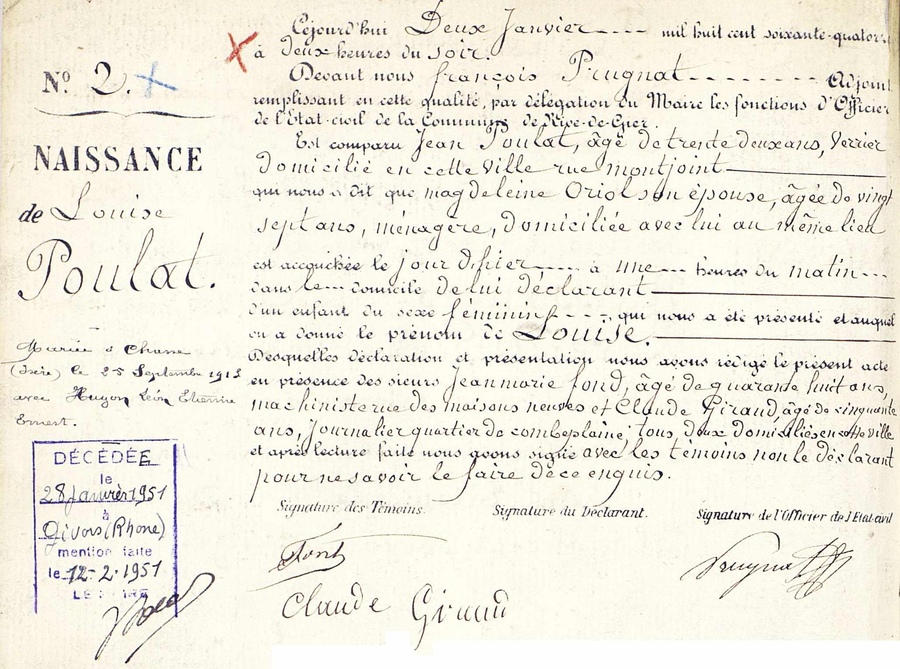 N.º 2.
NAISSANCE
de Louise
Poulat.
Mariée à Chasse
(Isère) le 25 Septembre
avec Hugon Léon Etienne
Ernest.
DÉCÉDÉE
le
28 Janvier 1951
à
Givors (Rhone)
mention faite
le 12-2-1951
LE MAIRE
Cejourd'hui Deux Janvier mil huit cent soixante-quatorz
à deux heures du soir.
Devant nous françois Prugnat Adjoint
remplissant en cette qualité, par délégation du Maire les fonctions d'Officier
de l'État-civil de la Commune de Rive-de-Gier.
Est comparu Jean Poulat, âgé de trente deux ans, verrier
domicilié en cette ville rue montjoint
qui nous a dit que magdeleine Oriol son épouse, âgée de vingt
sept ans, ménagère, domiciliée avec lui au même lieu
est accouchée le jour d'hier à une heures du matin
dans le domicile de lui déclarant
d'un enfant du sexe féminin, qui nous a été présenté et auquel
on a donné le prénom de Louise.
Desquelles déclaration et présentation nous avons rédigé le présent acte
en présence des sieurs Jean marie fond, âgé de quarante huit ans,
machiniste rue des maisons neuves et Claude Giraud, âgé de cinquante
ans, journalier quartier de combeplaine, tous deux domiciliés en cette ville
et après lecture faite nous avons signé avec les témoins non le déclarant
pour ne savoir le faire de ce enquis.
Signature des Témoins. Signature du Déclarant. Signature de l'Officier de l'Etat-civil
Font
Prugnat
Claude Giraud